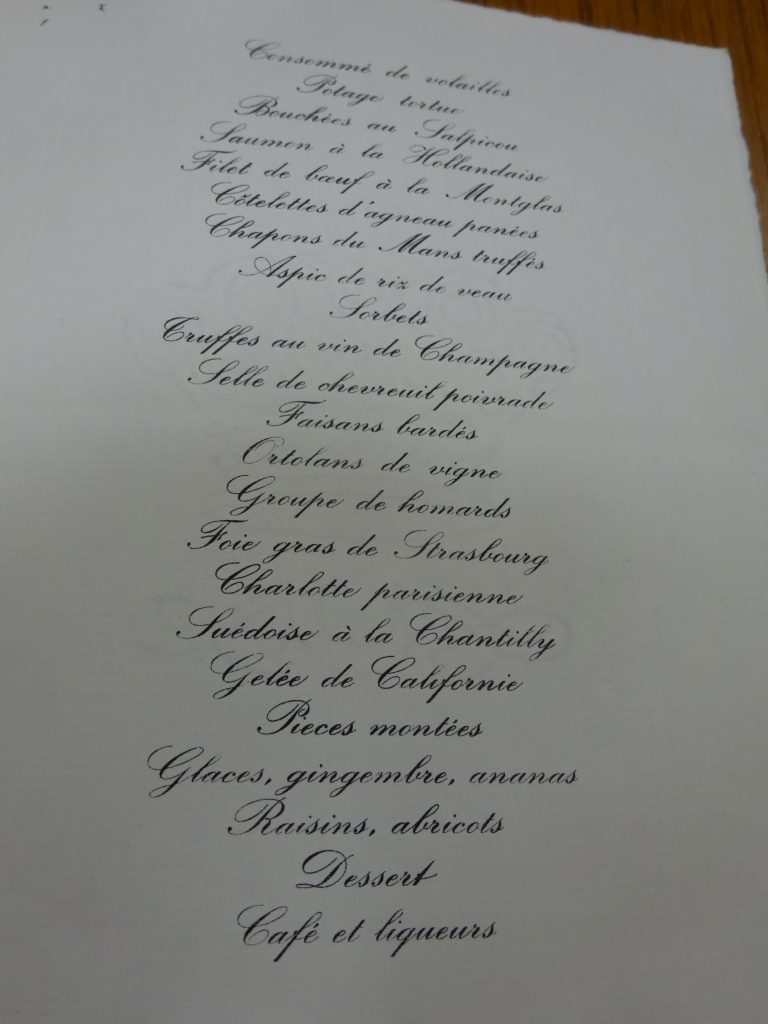 Consommé de volailles
Potage tortue
Bouchées au Salpicou
Saumon à la Hollandaise
Filet de bœuf à la Montglas
Côtelettes d'agneau panées
Chapons du Mans truffés
Aspic de riz de veau
Sorbets
Truffes au vin de Champagne
Selle de chevreuil poivrade
Faisans bardés
Ortolans de vigne
Groupe de homards
Foie gras de Strasbourg
Charlotte parisienne
Suédoise à la Chantilly
Gelée de Californie
Pieces montées
Glaces, gingembre, ananas
Raisins, abricots
Dessert
Café et liqueurs